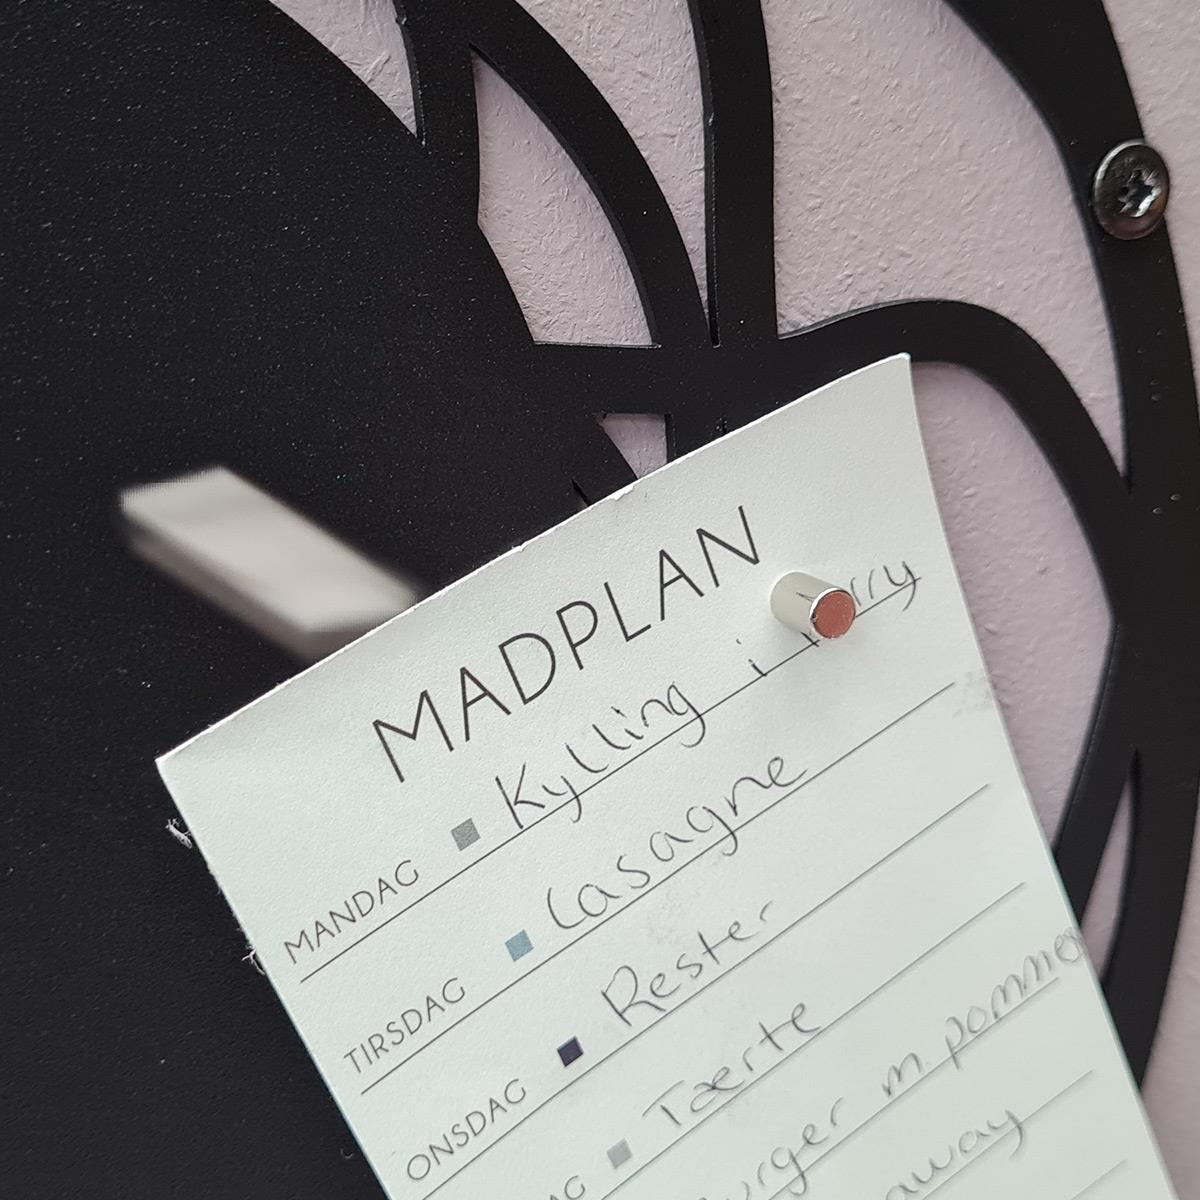 MADPLAN
MANDAG Kylling i
TIRSDAG Lasagne
ONSDAG Rester
Tærte
m. pommes